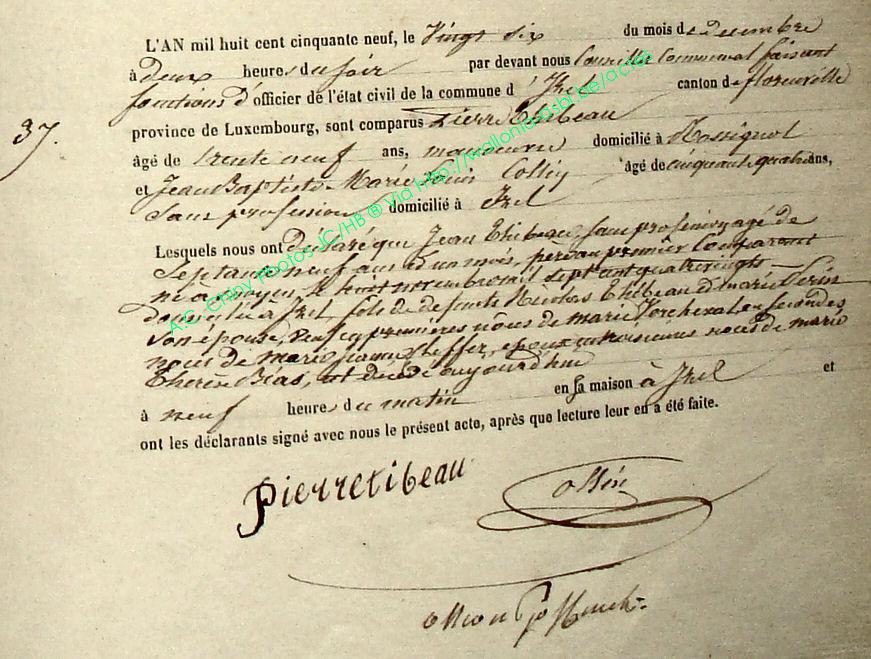 L'AN mil huit cent cinquante neuf, le Vingt six du mois de Decembre
à deux heures du soir par devant nous Conseiller Communal faisant
fonctions d'officier de l'état civil de la commune d'Izel canton de florenville
37.
province de Luxembourg, sont comparus Pierre Thibeau
âgé de trente neuf ans, manoeuvre domicilié à Rossignol
et Jean Baptiste Marie Louis Collin âgé de cinquante quatre ans,
Sans profession domicilié à Izel
Lesquels nous ont déclaré que Jean Thibeau, sans profession, âgé de
Septante neuf ans d'un mois, père au premier Comparant
né à moyen le novembre mil sept cent quatrevingts
domicilié à Izel fils de defunts Nicolas Thibeau et marie
son épouse, veuf en premières nôces de marie en secondes
noces de marie jeanne epoux en troisiemes noces de marie
Therèse Bias, est décédé aujourd'hui
à neuf heures du matin en sa maison à Izel et
ont les déclarants signé avec nous le présent acte, après que lecture leur en a été faite.
Pierre tibeau
ollin
A.C. Chiny Photos JC/HB ® Via http://wallonia-asbl.be/ac/gt